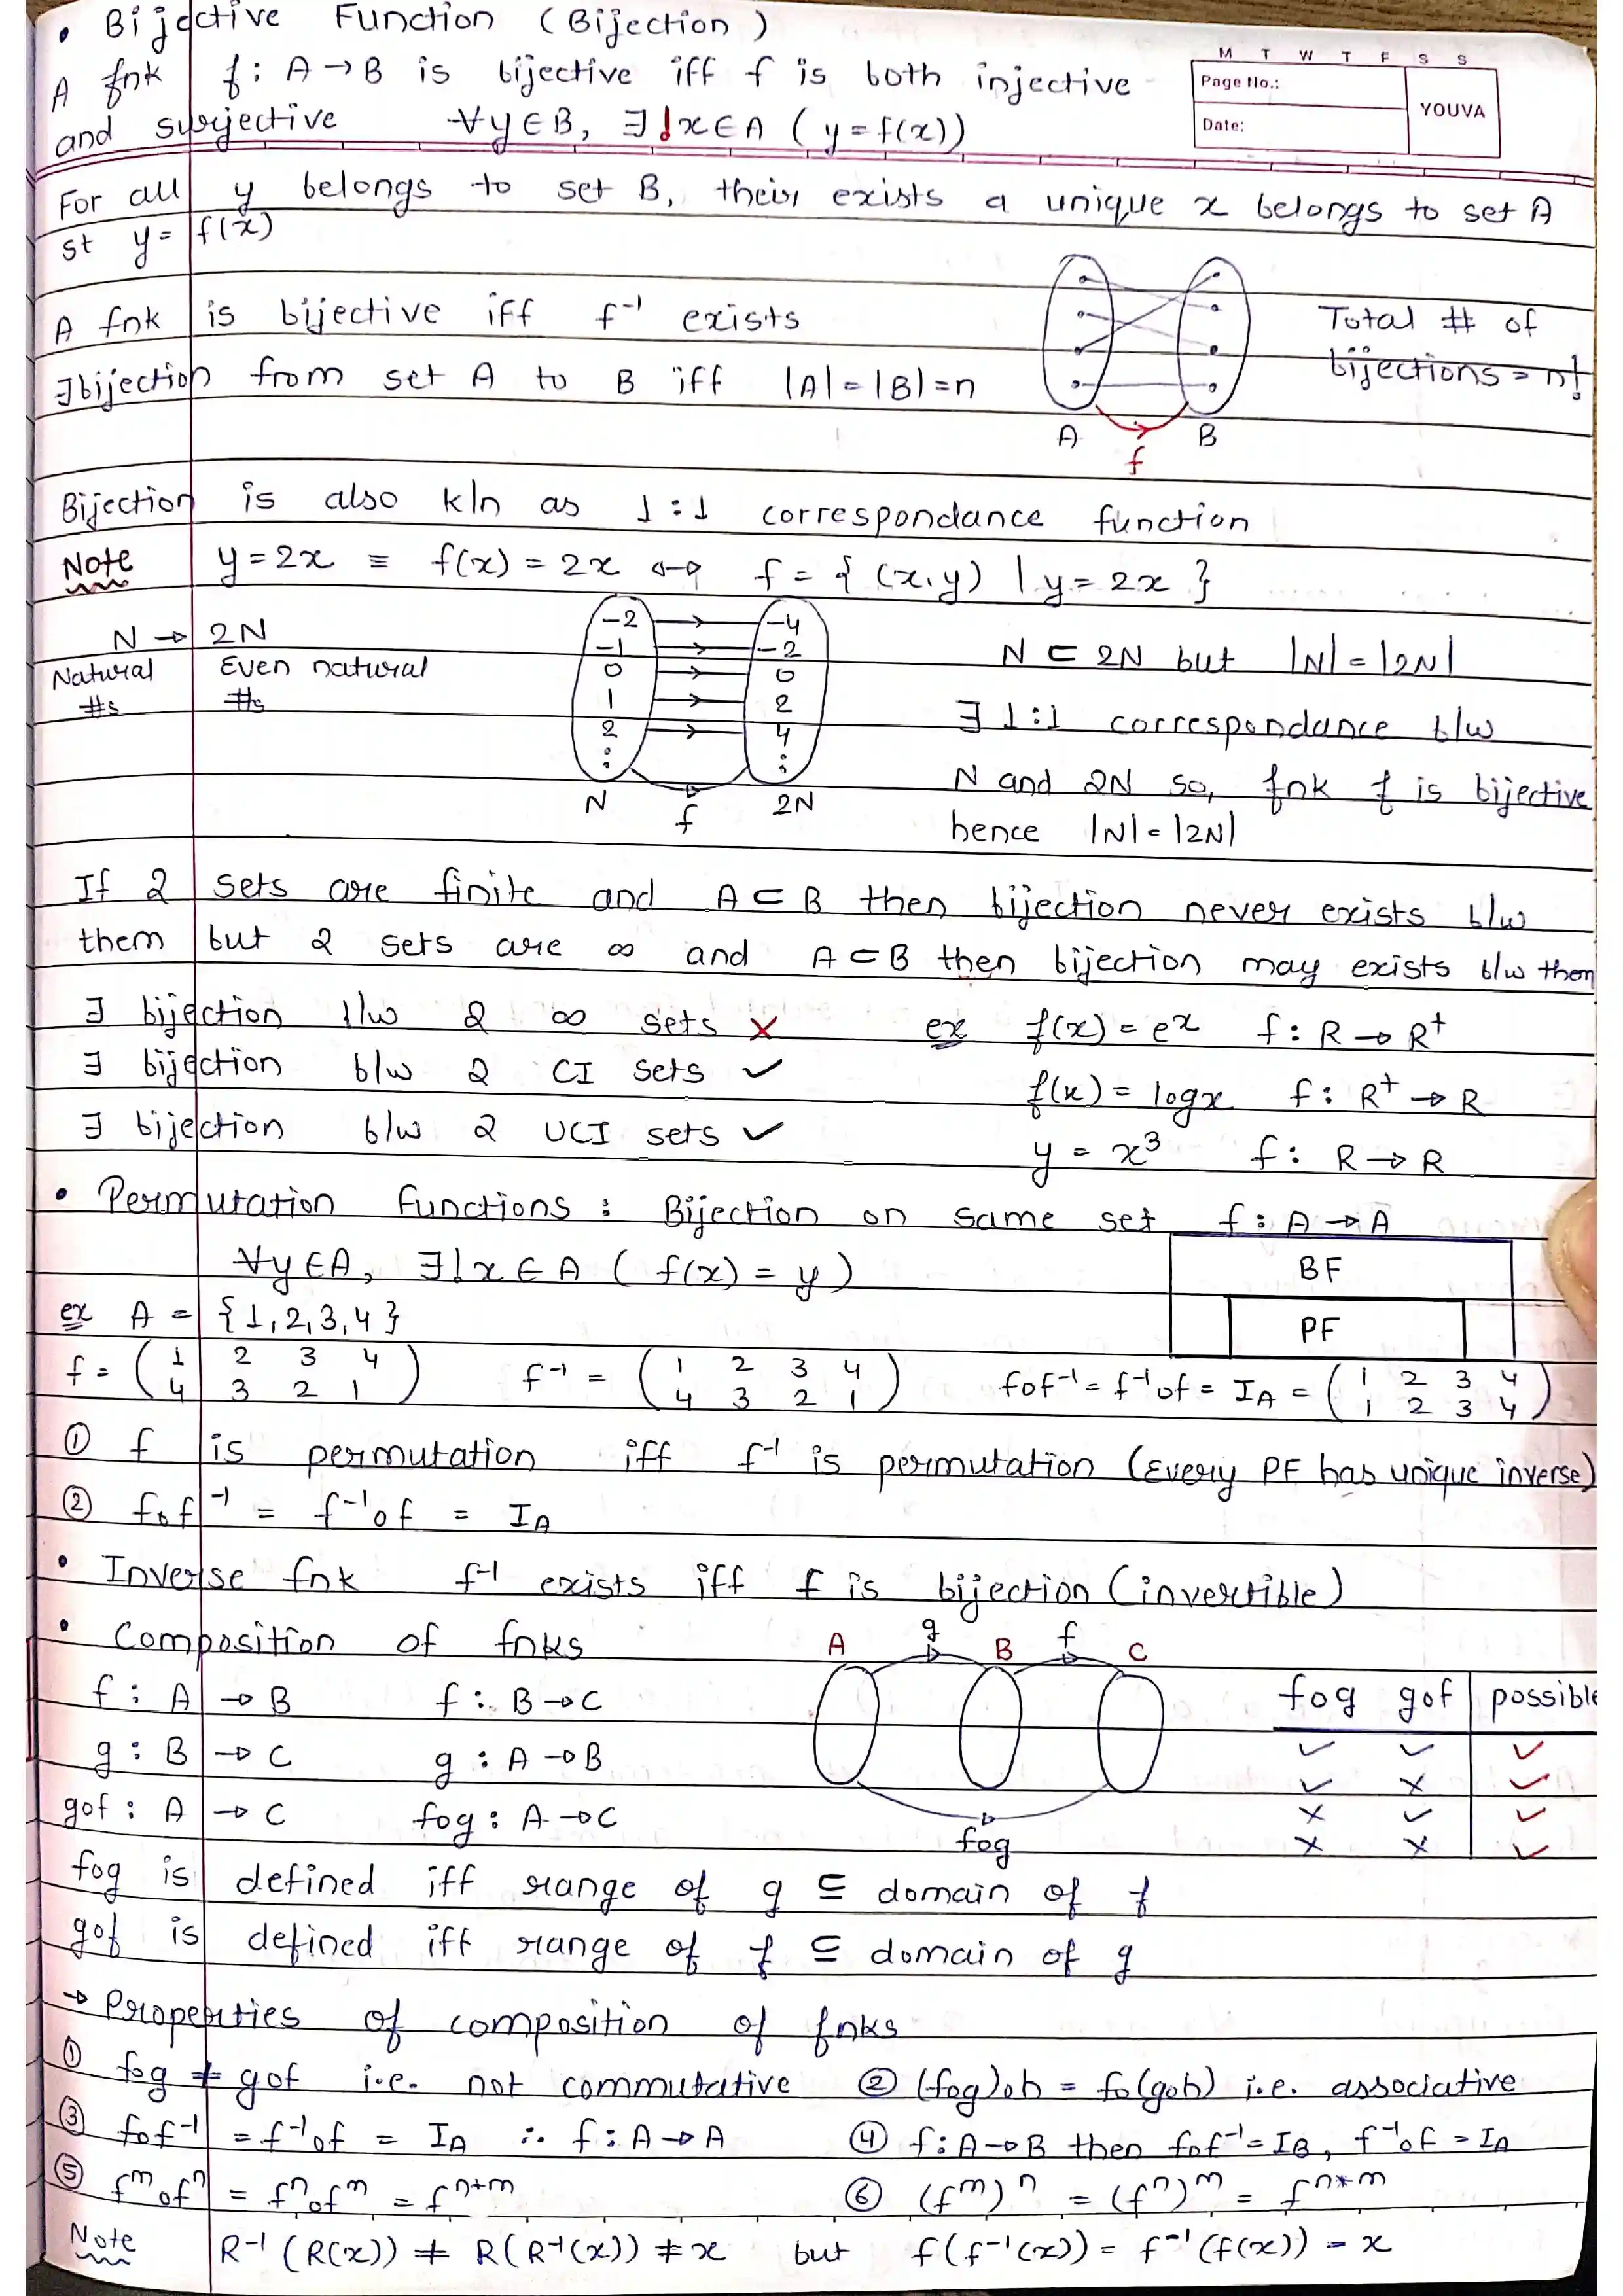 • Bijective Function (Bijection)
M T W T F S S
Page No.:
Date:
YOUVA
A fnk f: A→B is bijective iff f is both injective
and surjective ∀y∈B, ∃!x∈A (y=f(x))
For all y belongs to set B, their exists a unique x belongs to set A
st y= f(x)
A fnk is bijective iff f⁻¹ exists
∃bijection from set A to B iff |A|=|B|=n
Total # of
bijections = n!
A B
f
Bijection is also k/n as 1:1 correspondance function
Note y=2x ≡ f(x) = 2x ↔ f = { (x,y) | y= 2x }
N → 2N
Natural Even natural
#s #s
-2 → -4
-1 → -2
0 → 0
1 → 2
2 → 4
⋮ ⋮
N f 2N
N ⊂ 2N but |N|=|2N|
∃ 1:1 correspondance b/w
N and 2N so, fnk f is bijective
hence |N|=|2N|
If 2 sets are finite and A⊂B then bijection never exists b/w
them but 2 sets are ∞ and A⊂B then bijection may exists b/w them
∃ bijection b/w 2 ∞ sets ✗
∃ bijection b/w 2 CI sets ✓
∃ bijection b/w 2 UCI sets ✓
ex f(x) = eˣ f: R → R⁺
f(x) = logx f: R⁺ → R
y = x³ f: R → R
• Permutation Functions : Bijection on same set f: A→A
∀y∈A, ∃!x∈A (f(x) = y)
BF
PF
ex A = {1,2,3,4}
f = (1 2 3 4 / 4 3 2 1) f⁻¹ = (1 2 3 4 / 4 3 2 1) fof⁻¹ = f⁻¹of = I_A = (1 2 3 4 / 1 2 3 4)
① f is permutation iff f⁻¹ is permutation (Every PF has unique inverse)
② fof⁻¹ = f⁻¹of = I_A
• Inverse fnk f⁻¹ exists iff f is bijection (invertible)
• Composition of fnks
f: A → B f: B→C
g: B → C g: A→B
gof: A → C fog: A→C
A g B f C
fog
fog gof | possible
✓ ✓ | ✓
✓ ✗ | ✓
✗ ✓ | ✓
✗ ✗ | ✓
fog is defined iff range of g ⊆ domain of f
gof is defined iff range of f ⊆ domain of g
→ Properties of composition of fnks
① fog ≠ gof i.e. not commutative ② (fog)oh = fo(goh) i.e. associative
③ fof⁻¹ = f⁻¹of = I_A ∴ f: A→A ④ f:A→B then fof⁻¹=I_B, f⁻¹of = I_A
⑤ fᵐofⁿ = fⁿofᵐ = fⁿ⁺ᵐ ⑥ (fᵐ)ⁿ = (fⁿ)ᵐ = fⁿ*ᵐ
Note R⁻¹(R(x)) ≠ R(R⁻¹(x)) ≠ x but f(f⁻¹(x)) = f⁻¹(f(x)) = x